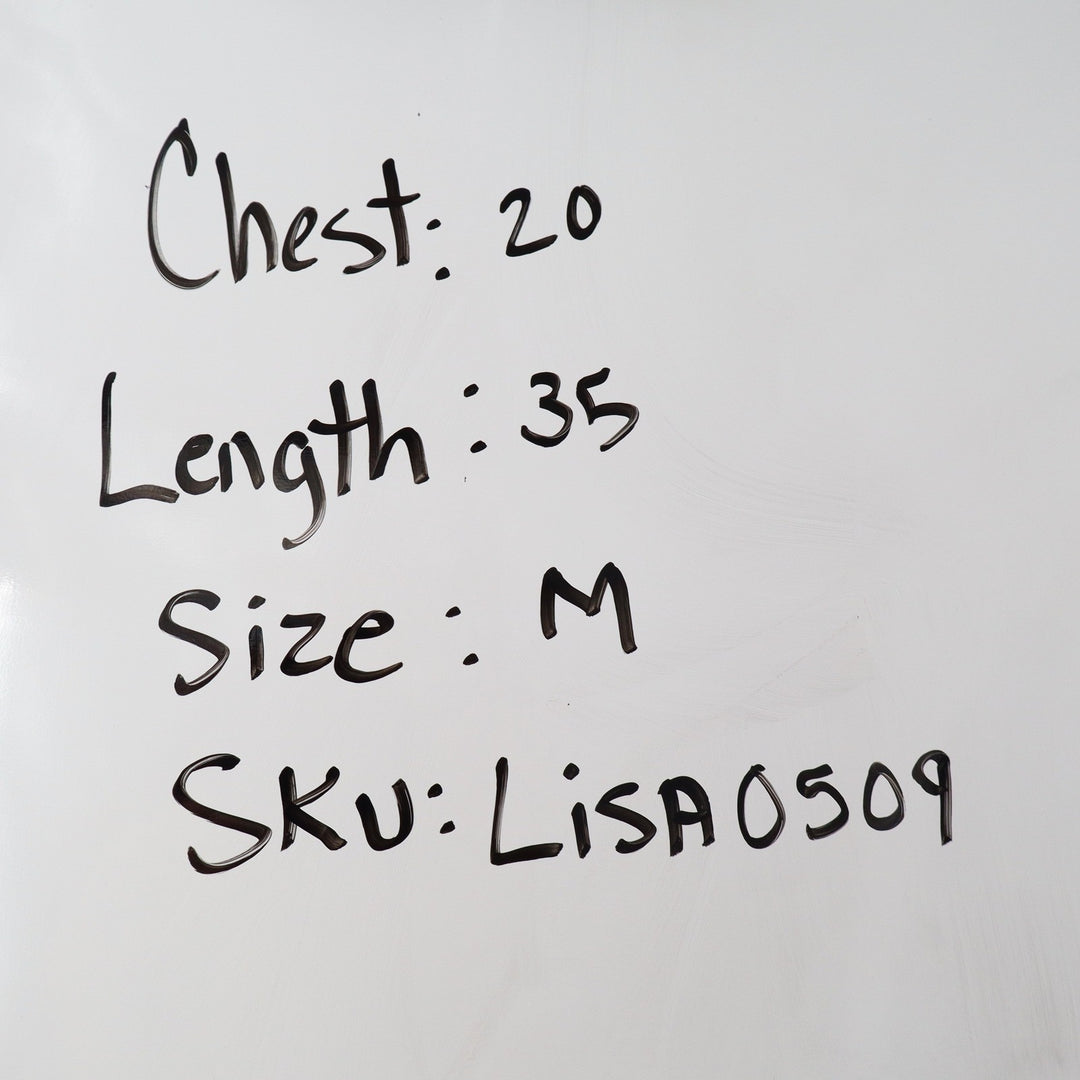 Chest: 20
Length: 35
Size: M
SKU: LiSA0509